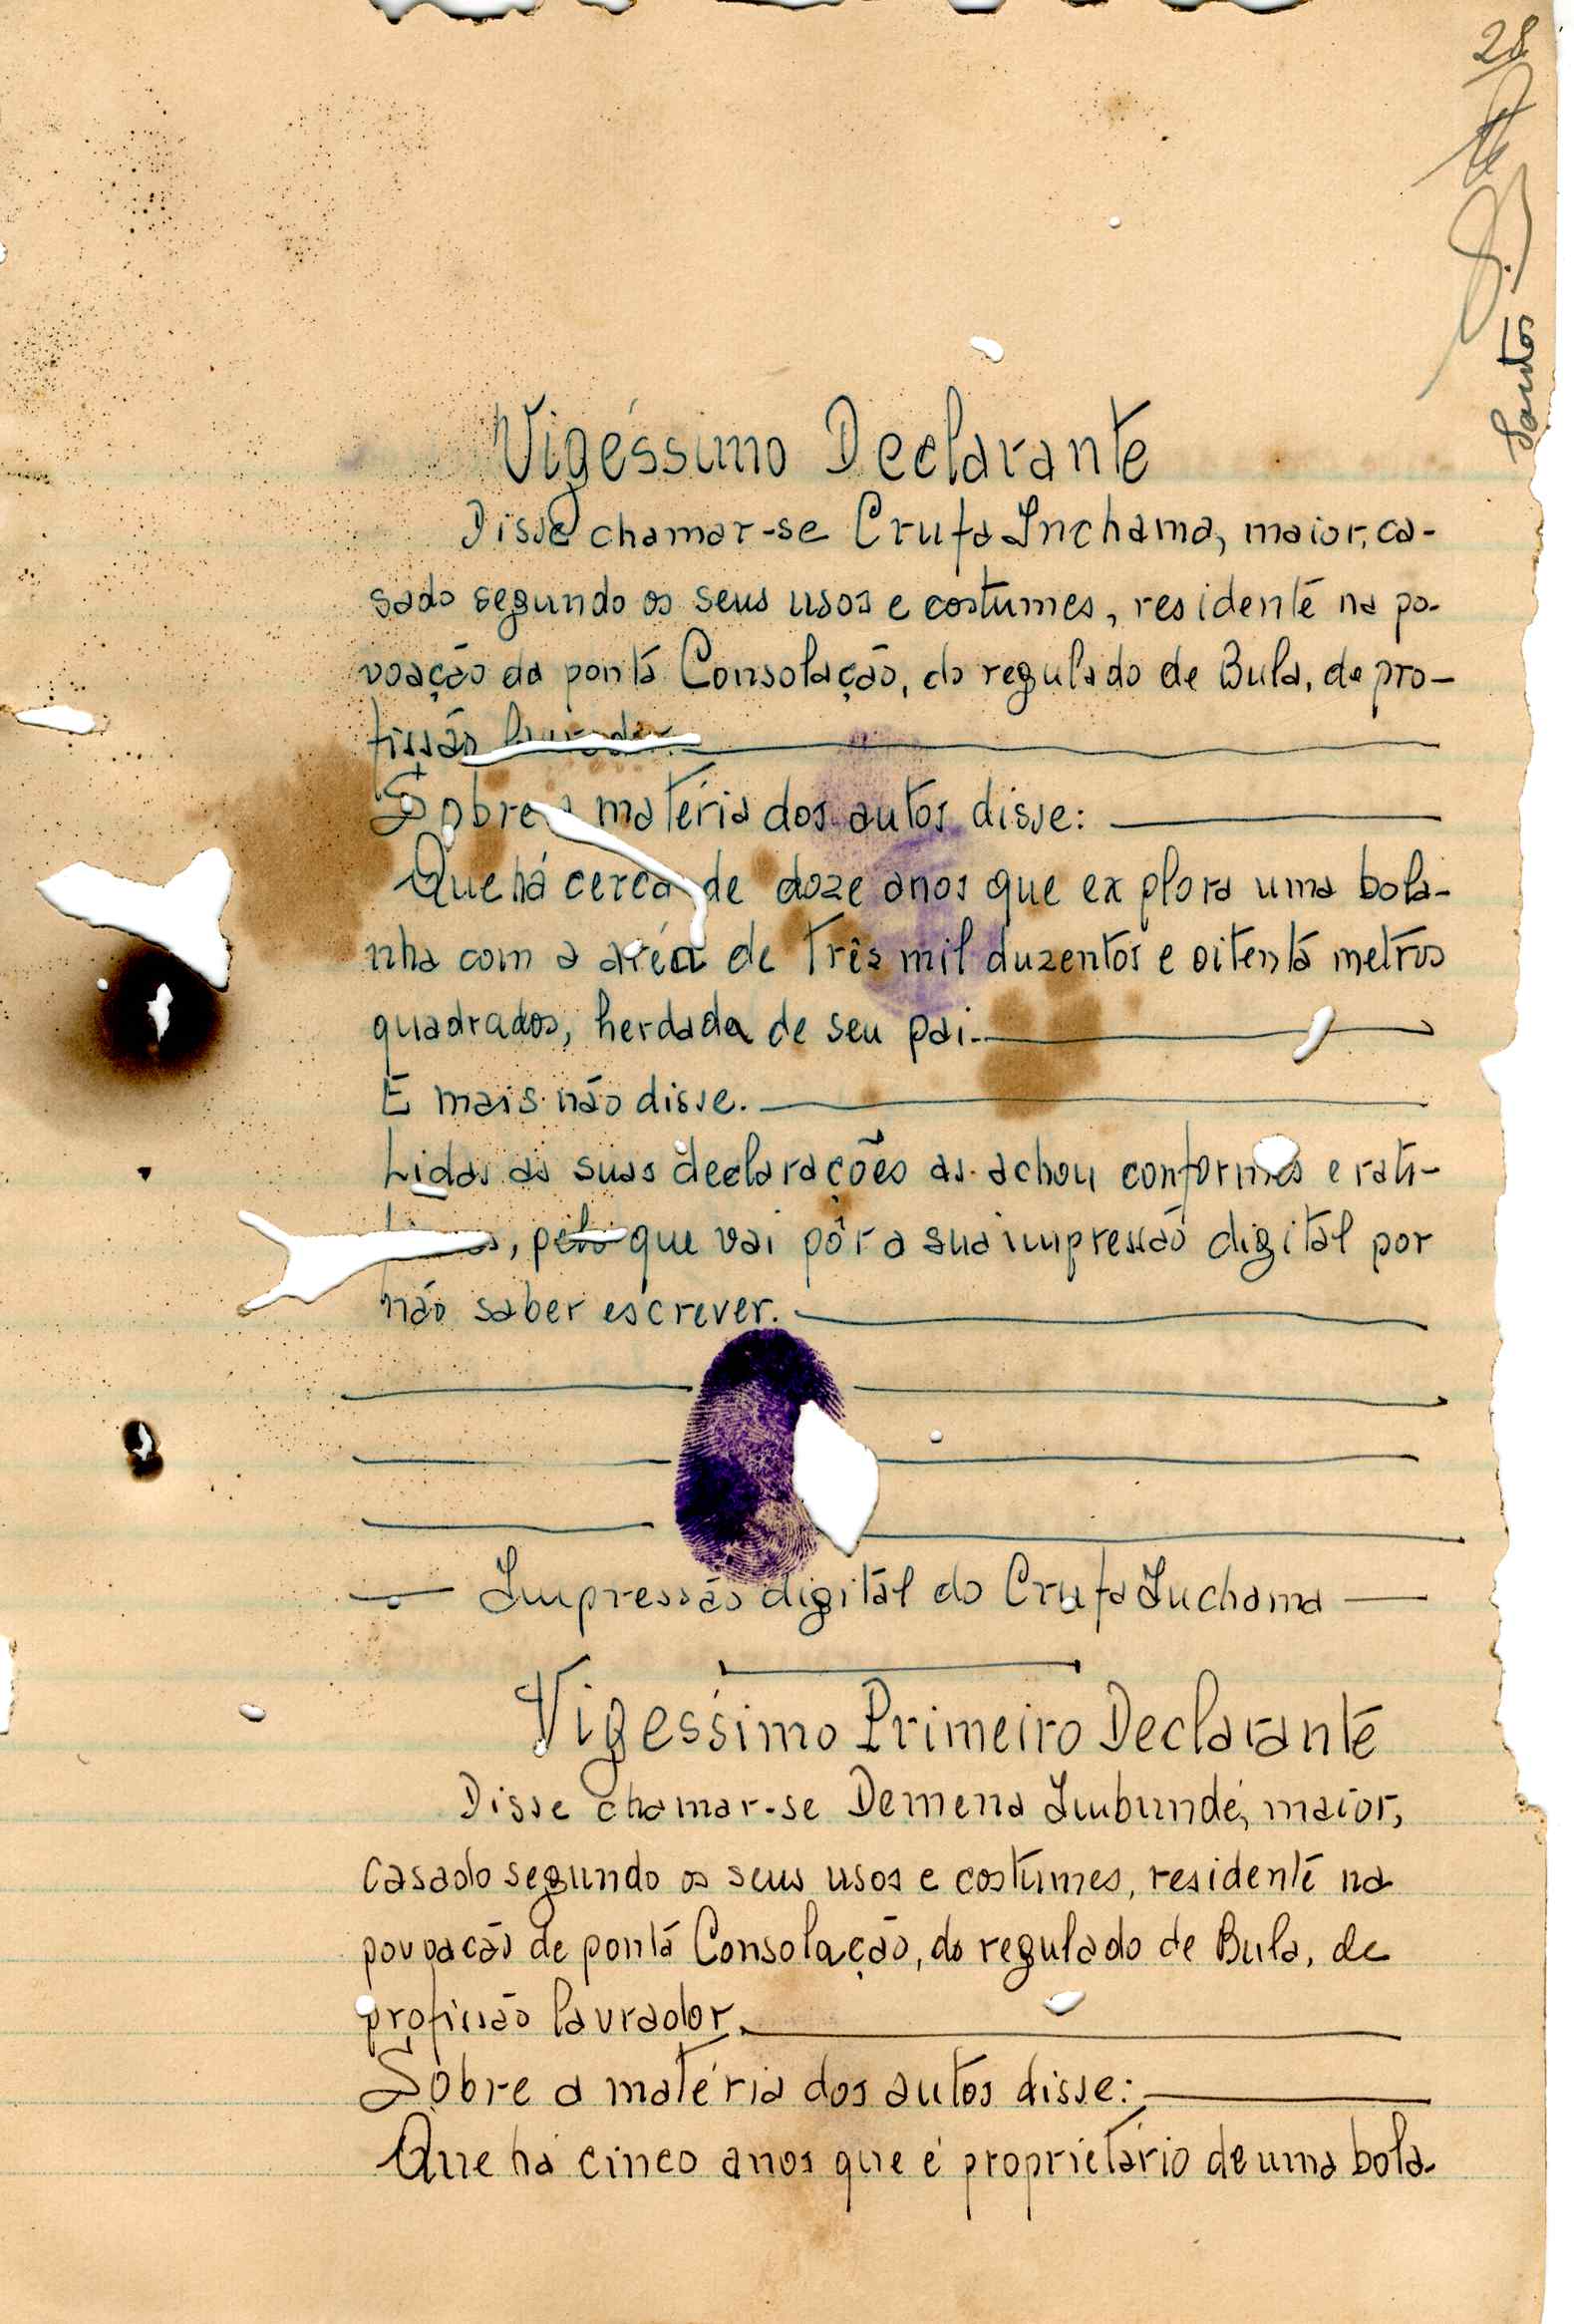 28
Santos
Vigéssimo Declarante
Disse chamar-se Crufa Inchama, maior, ca-
sado segundo os seus usos e costumes, residente na po-
voação da ponta Consolação, do regulado de Bula, de pro-
fissão lavrador.
Sobre a matéria dos autos disse:
Que há cerca de doze anos que explora uma bola-
nha com a aréa de três mil duzentos e oitenta metros
quadrados, herdada de seu pai.
E mais não disse.
Lidas as suas declarações as achou conformes e rati-
, pelo que vai pôr a sua impressão digital por
não saber escrever.
Impressão digital do Crufa Inchama
Vigéssimo Primeiro Declarante
Disse chamar-se Demena Imbundé, maior,
casado segundo os seus usos e costumes, residente na
povoacão de ponta Consolação, do regulado de Bula, de
profissão lavrador.
Sobre a matéria dos autos disse:
Que há cinco anos que é proprietário de uma bola-